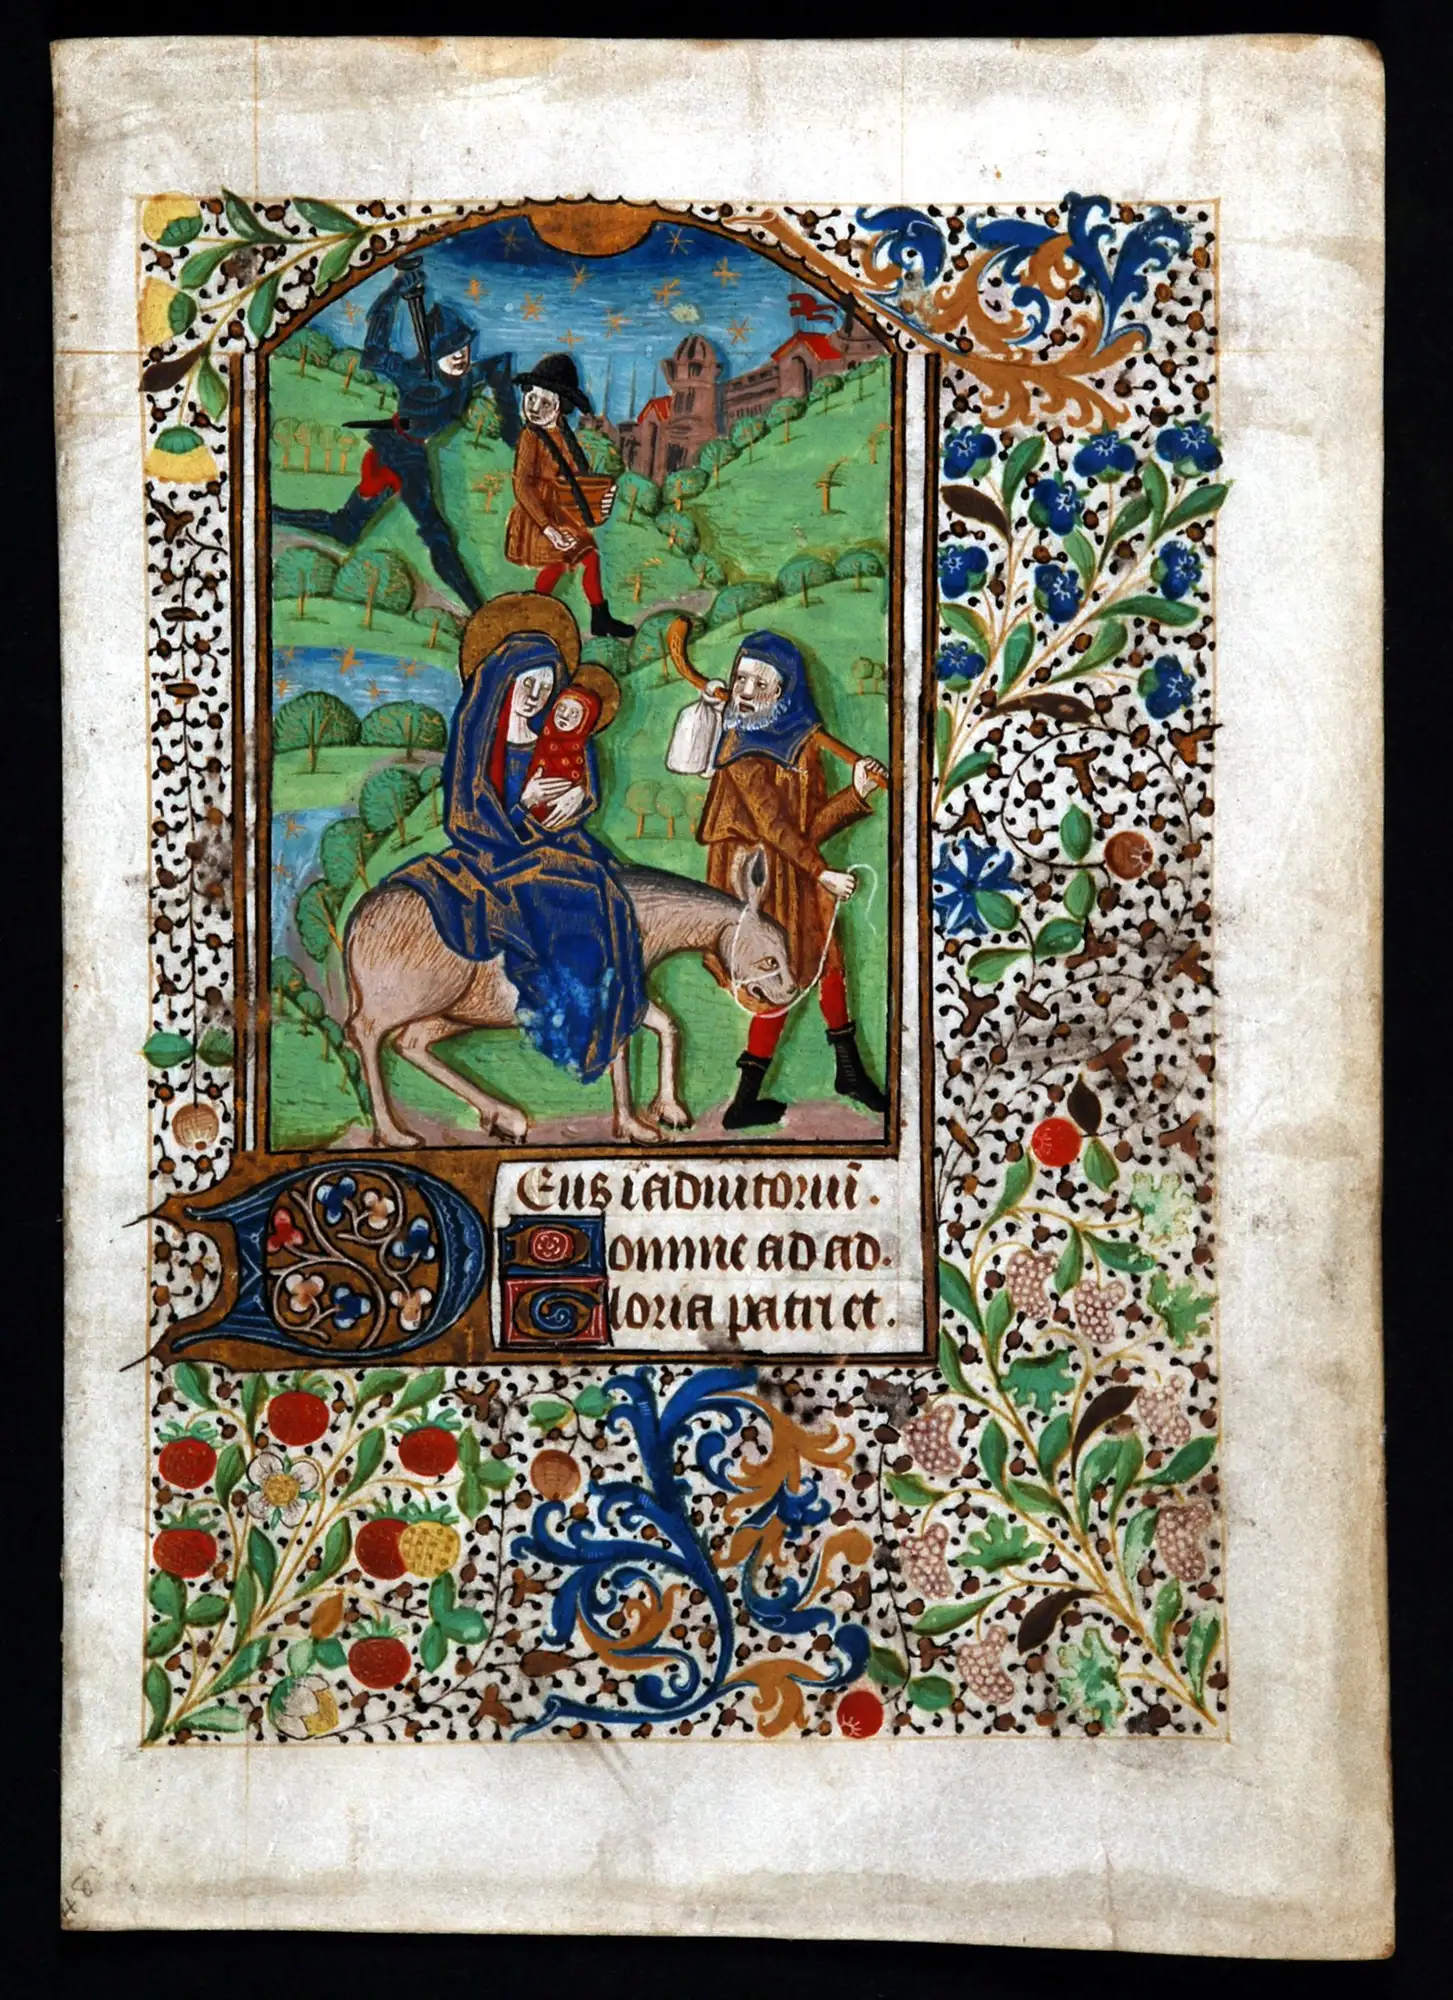 Deus ī adiutoriū.
Domine ad ad.
Gloria patri et.
48